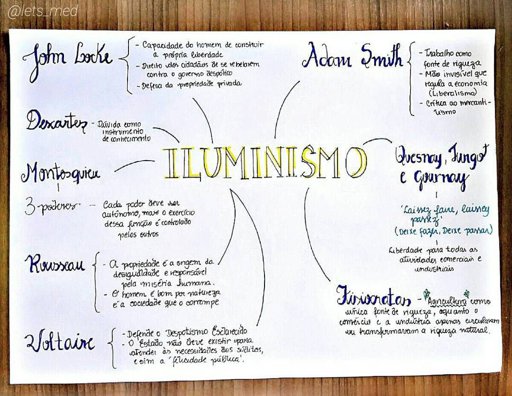 @lets_med
John Locke
- Capacidade do homem de construir
à própria liberdade
- Direito dos cidadãos de se rebelarem
contra o governo despótico
- Defesa da propriedade privada
Adam Smith
- Trabalho como
fonte de riqueza
- Mão invisível que
regula a economia
(Liberalismo)
- Crítica ao mercanti-
lismo
Descartes - Dúvida como
instrumento
de conhecimento
ILUMINISMO
Montesquieu
3 poderes - Cada poder deve ser
autônomo, mas o exercício
dessa função é controlado
pelos outros
Quesnay, Turgot
e Gournay
"Laissez faire, laissez
passez"
(Deixe fazer, Deixe passar)
Liberdade para todas as
atividades comerciais e
industriais
Rousseau
- A propriedade é a origem da
desigualdade e responsável
pela miséria humana.
- O homem é bom por natureza
e é a sociedade que o corrompe
Fisiocratas - Agricultura como
única fonte de riqueza, enquanto o
comércio e a indústria apenas circulavam
ou transformavam a riqueza natural.
Voltaire
- Defende o Despotismo Esclarecido
- O Estado não deve existir para
atender às necessidades dos súditos,
e sim a "felicidade pública".